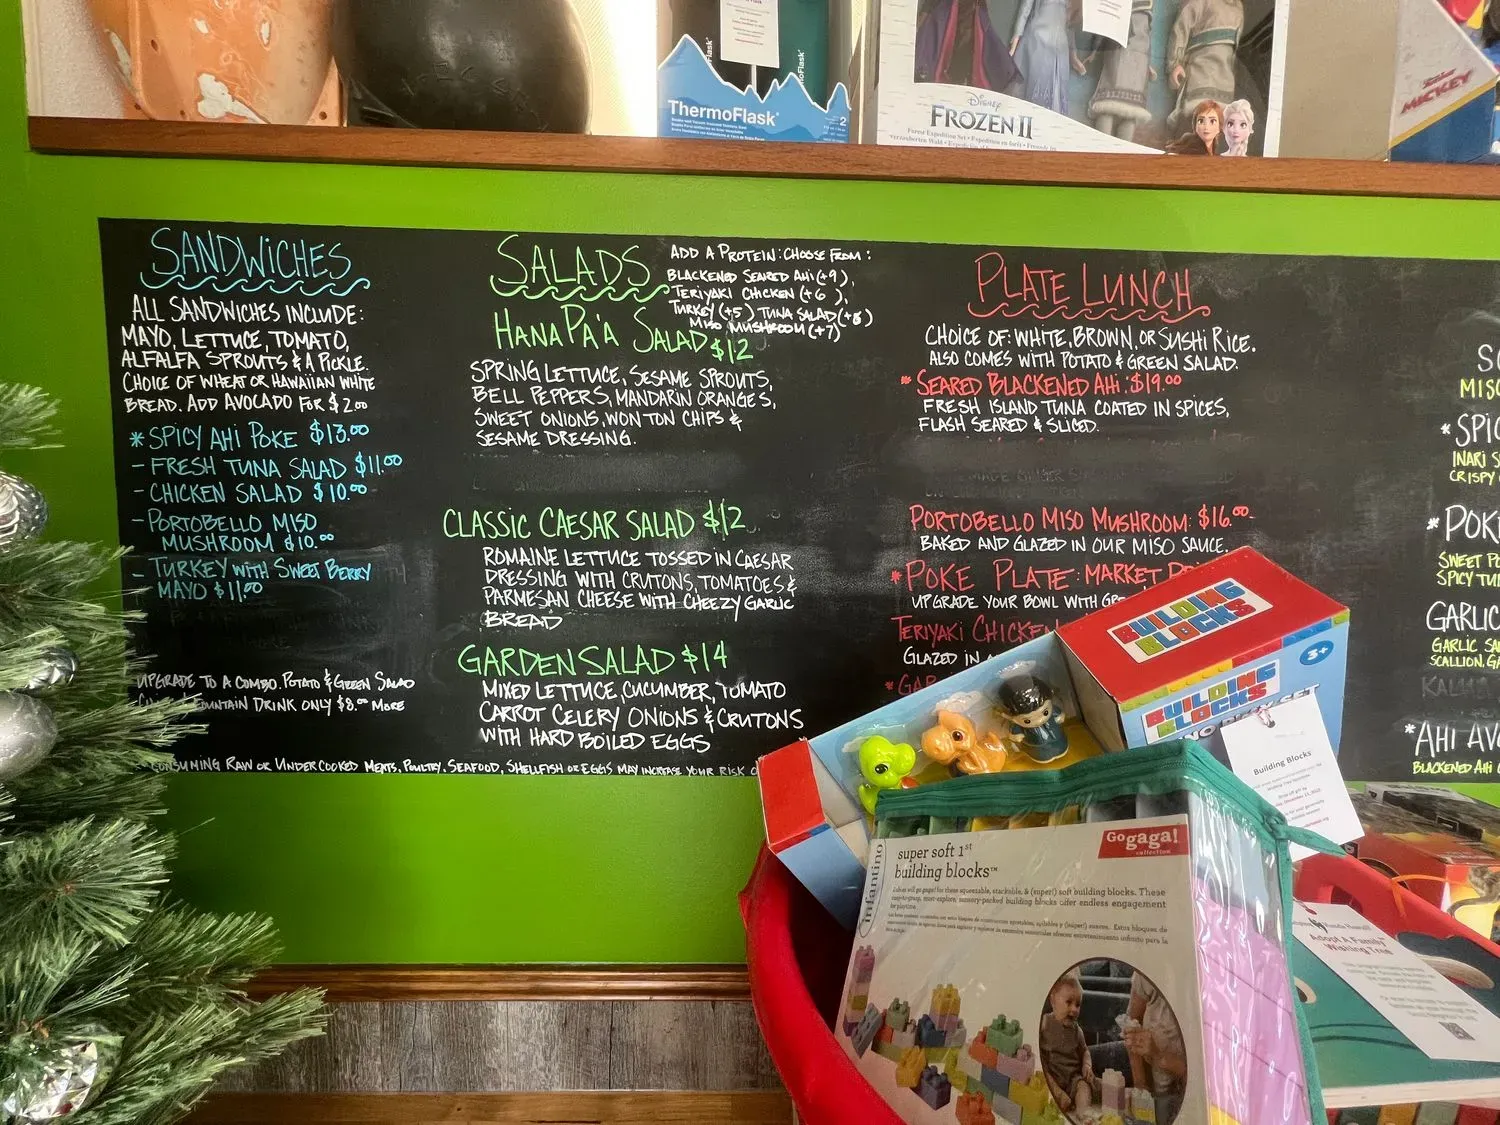 ThermoFlask
2
Disney
FROZEN II
MICKEY
SANDWiCHES
ALL SANDWICHES INCLUDE:
MAYO, LETTUCE, TOMATO,
ALFALFA SPROUTS & A PICKLE.
CHOICE OF WHEAT OR HAWAIIAN WHITE
BREAD. ADD AVOCADO FOR $2.00
* SPICY AHI POKE $13.00
- FRESH TUNA SALAD $11.00
- CHICKEN SALAD $10.00
- PORTOBELLO MISO
MUSHROOM $10.00
- TURKEY WITH SWEET BERRY
- MAYO $11.00
UPGRADE TO A COMBO. POTATO & GREEN SALAD
FOUNTAIN DRINK ONLY $8.00 MORE
SALADS
ADD A PROTEIN: CHOOSE FROM:
BLACKENED SEARED AHI (+9),
TERIYAKI CHICKEN (+6),
TURKEY (+5) TUNA SALAD
MISO MUSHROOM (+7)
HANA PA'A SALAD $12
SPRING LETTUCE, SESAME SPROUTS,
BELL PEPPERS, MANDARIN ORANGES,
SWEET ONIONS, WON TON CHIPS &
SESAME DRESSING.
CLASSIC CAESAR SALAD $12
ROMAINE LETTUCE TOSSED IN CAESAR
DRESSING WITH CRUTONS, TOMATOES &
PARMESAN CHEESE WITH CHEEZY GARLIC
BREAD
GARDEN SALAD $14
MIXED LETTUCE, CUCUMBER, TOMATO
CARROT CELERY ONIONS & CRUTONS
WITH HARD BOILED EGGS
CONSUMING RAW OR UNDERCOOKED MEATS, POULTRY, SEAFOOD, SHELLFISH OR EGGS MAY INCREASE YOUR RISK O
PLATE LUNCH
CHOICE OF: WHITE, BROWN, OR SUSHI RICE.
ALSO COMES WITH POTATO & GREEN SALAD.
* SEARED BLACKENED AHI: $19.00
FRESH ISLAND TUNA COATED IN SPICES,
FLASH SEARED & SLICED.
PORTOBELLO MISO MUSHROOM: $16.00
BAKED AND GLAZED IN OUR MISO SAUCE.
* POKE PLATE: MARKET PR
UPGRADE YOUR BOWL WITH GRE
TERIYAKI CHICKEN
GLAZED IN
* GAR
SO
MISO
* SPIC
INARI S
CRISPY
* POK
SWEET PO
SPICY TU
GARLIC
GARLIC SA
SCALLION, GA
KALUA
* AHI AVO
BLACKENED AHI
BUILDING
BLOCKS
3+
BUILDING
BLOCKS
Building Blocks
Go gaga!
collection
infantino
super soft 1st
building blocks™
Adopt A Family
Wishing Tree